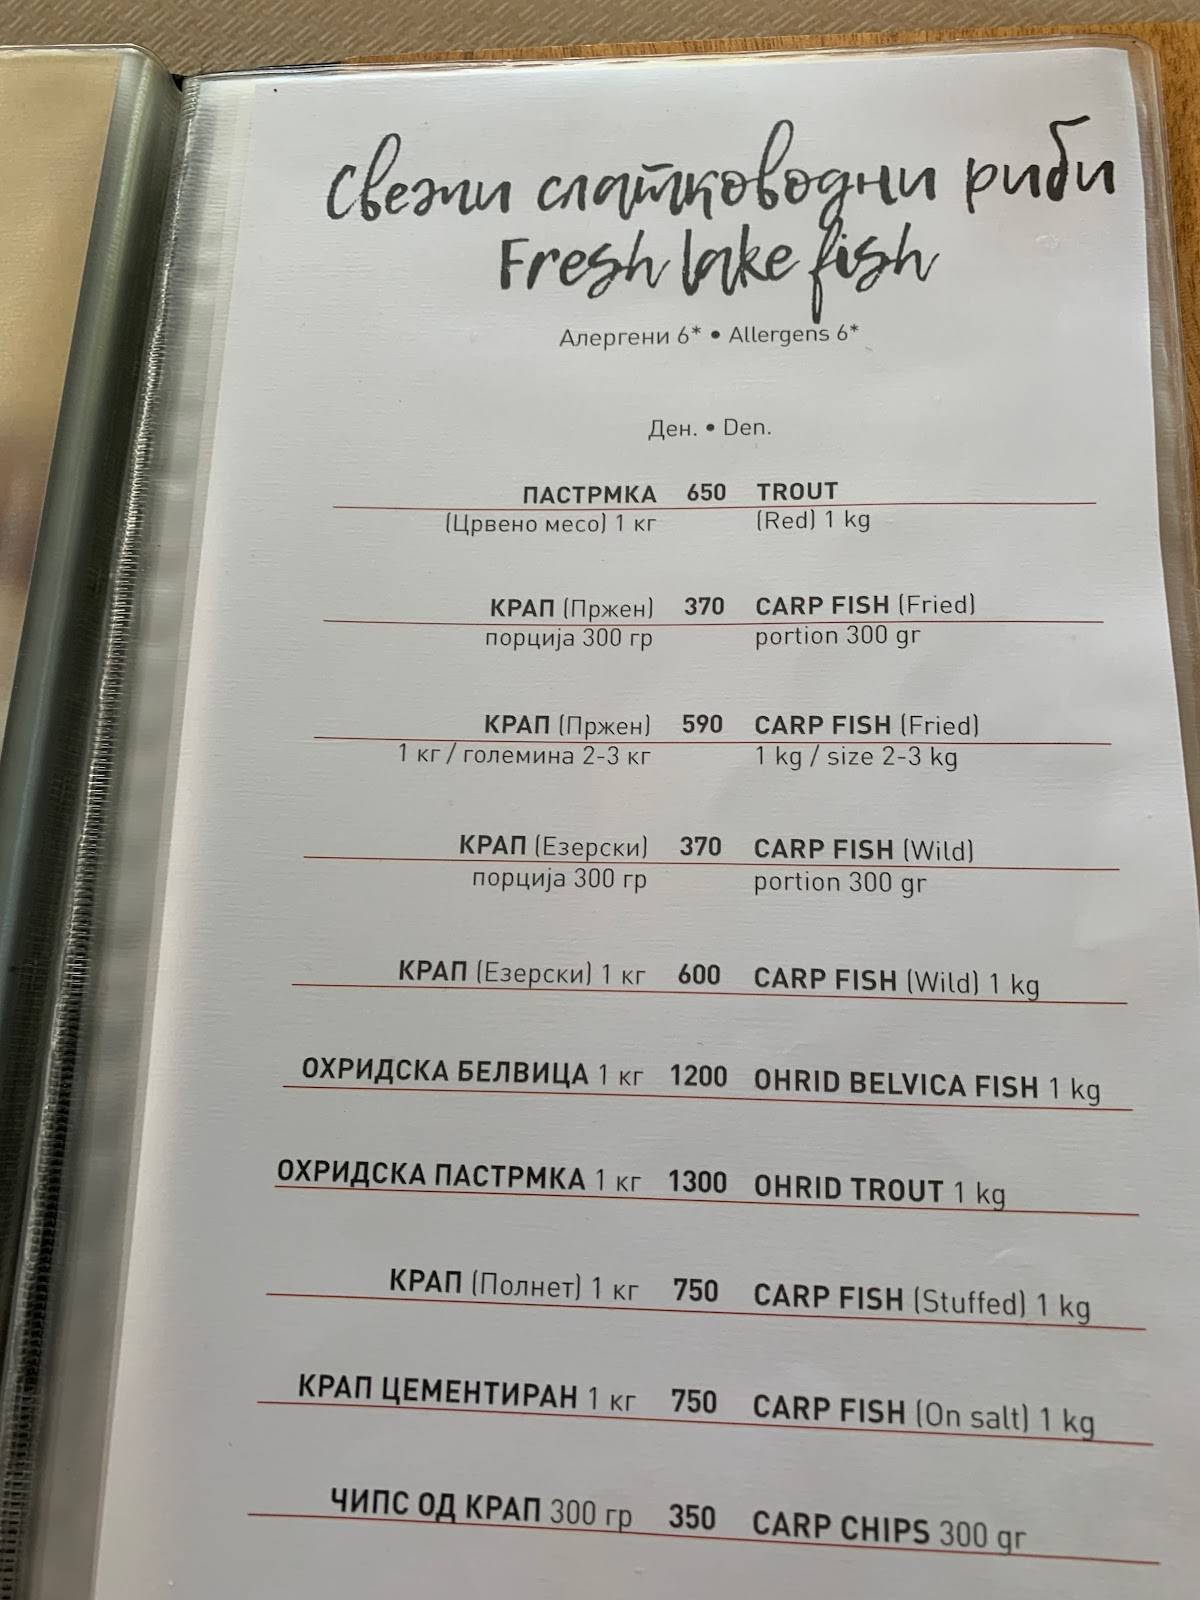 Свежи слатководни риби
Fresh lake fish
Алергени 6* • Allergens 6*
Ден. • Den.
ПАСТРМКА 650 TROUT
(Црвено месо) 1 кг (Red) 1 kg
КРАП (Пржен) 370 CARP FISH (Fried)
порција 300 гр portion 300 gr
КРАП (Пржен) 590 CARP FISH (Fried)
1 кг / големина 2-3 кг 1 kg / size 2-3 kg
КРАП (Езерски) 370 CARP FISH (Wild)
порција 300 гр portion 300 gr
КРАП (Езерски) 1 кг 600 CARP FISH (Wild) 1 kg
ОХРИДСКА БЕЛВИЦА 1 кг 1200 OHRID BELVICA FISH 1 kg
ОХРИДСКА ПАСТРМКА 1 кг 1300 OHRID TROUT 1 kg
КРАП (Полнет) 1 кг 750 CARP FISH (Stuffed) 1 kg
КРАП ЦЕМЕНТИРАН 1 кг 750 CARP FISH (On salt) 1 kg
ЧИПС ОД КРАП 300 гр 350 CARP CHIPS 300 gr